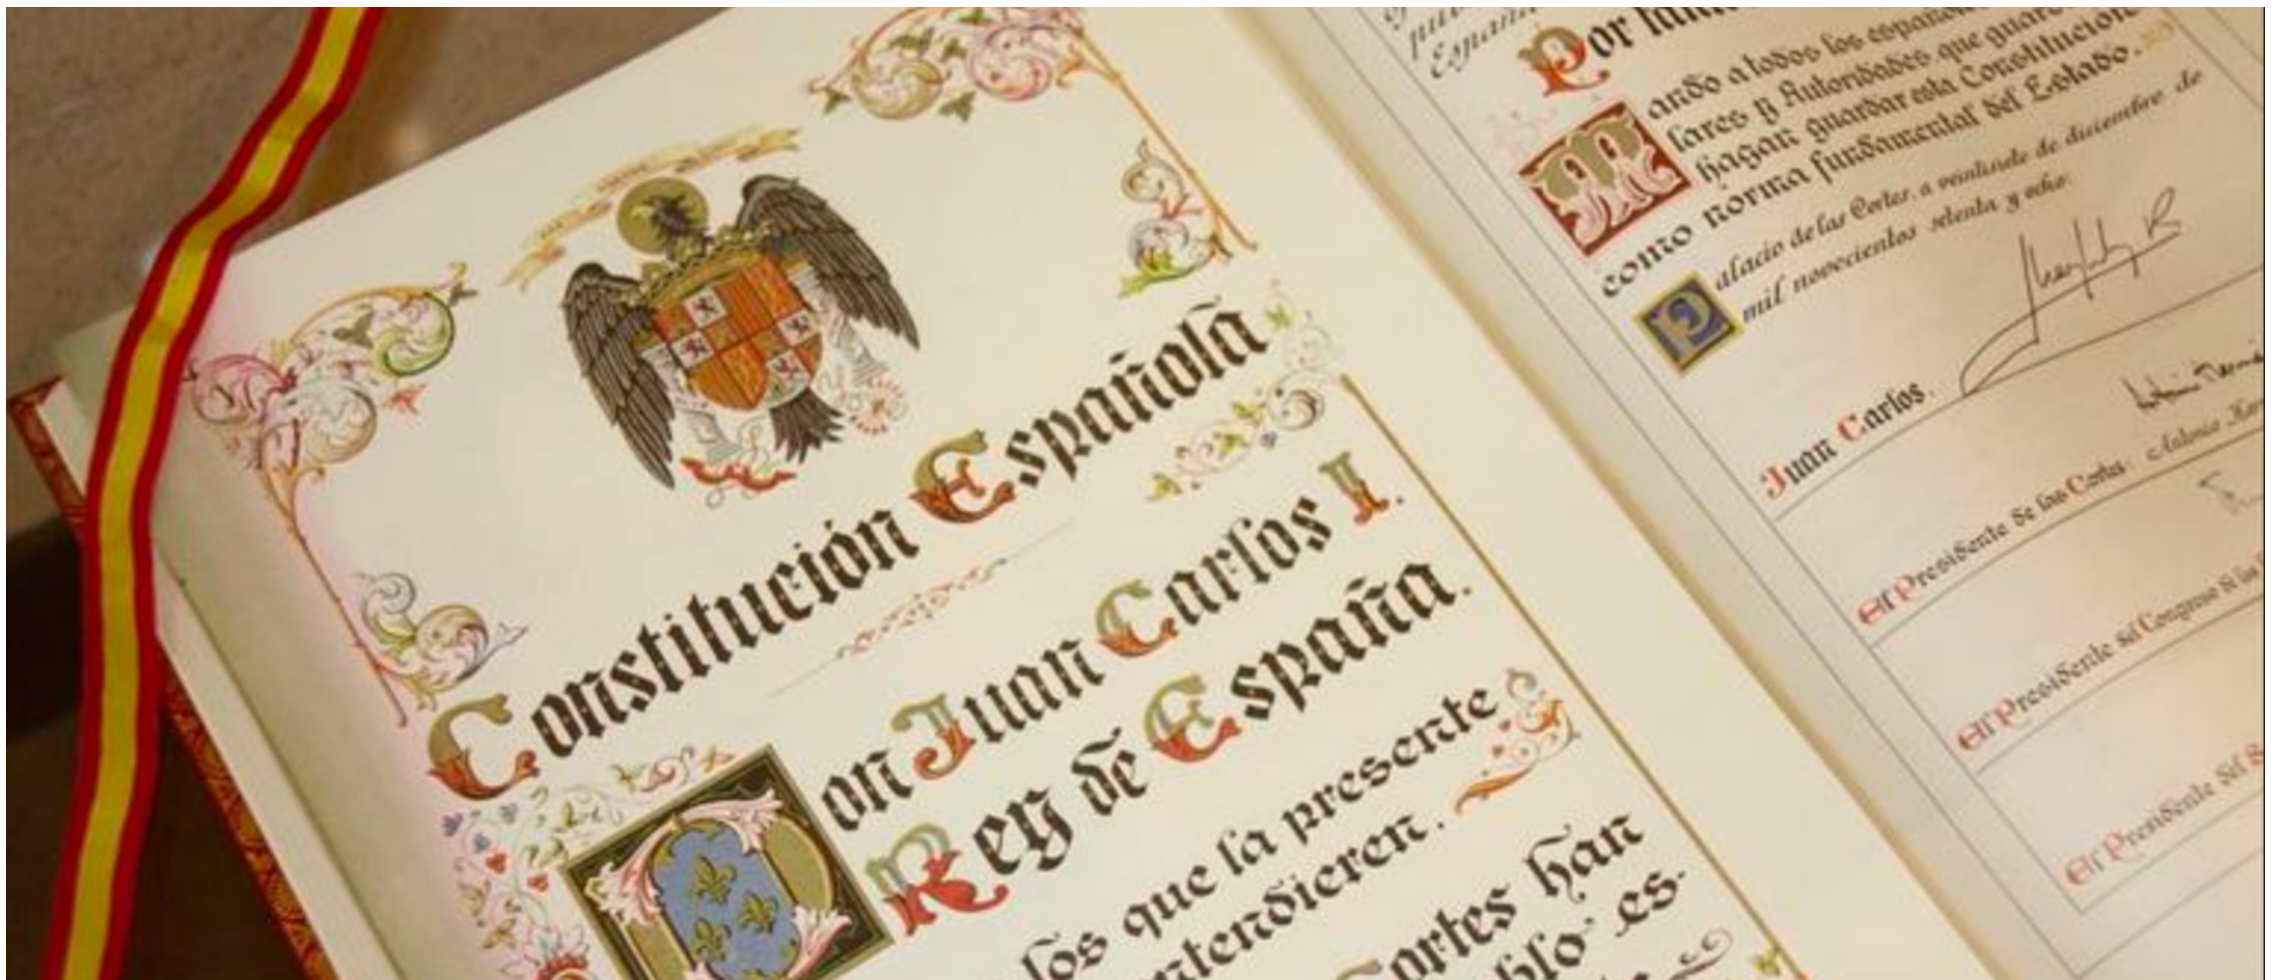 Constitución Española
Don Juan Carlos I.
Rey de España.
los que la presente
entendieren.
Cortes han
es-
Por
Mando a todos los españoles
lares y Autoridades, que guarden
hagan guardar esta Constitución
como norma fundamental del Estado.
Palacio de las Cortes, a veintisiete de diciembre de
mil novecientos setenta y ocho.
Juan Carlos.
El Presidente de las Cortes: Antonio
El Presidente del Congreso de los
El Presidente del